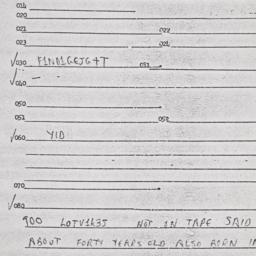 014
020
021 022
023 024
√030 F1ND1GEJG4T 031
√040 —
050
051 052
√060 YID
070
√080
900 LOTV1435 NOT IN TAPE SAID
ABOUT FORTY YEARS OLD ALSO BORN IN